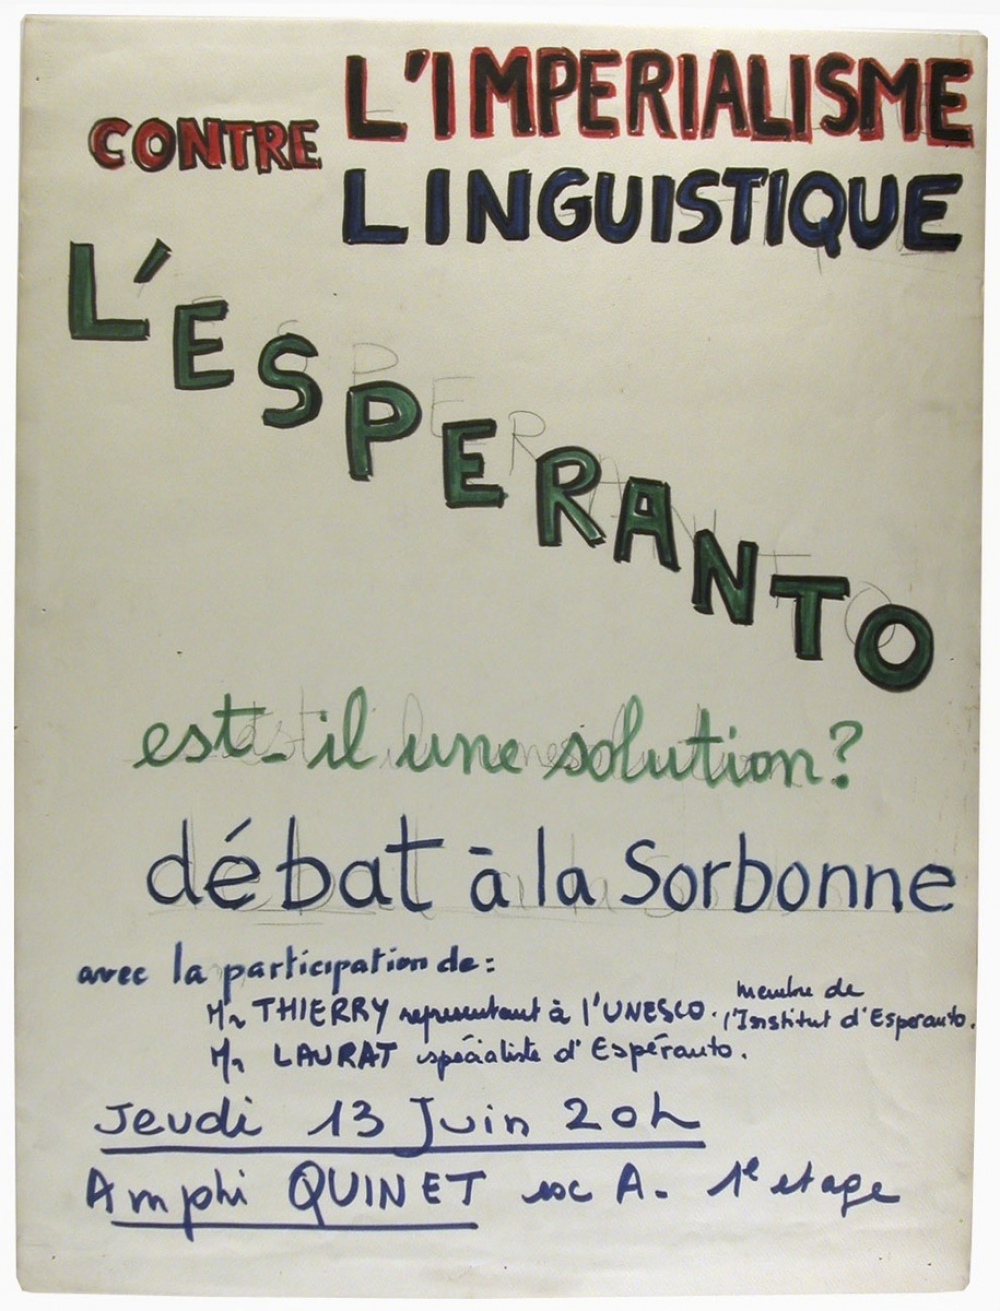 CONTRE L'IMPERIALISME
LINGUISTIQUE
L'ESPERANTO
est-il une solution?
débat à la Sorbonne
avec la participation de:
Mr THIERRY representant à l'UNESCO. membre de
l'Institut d'Esperanto.
Mr LAURAT spécialiste d'Espéranto.
Jeudi 13 Juin 20h
Amphi QUINET esc A. 1e etage